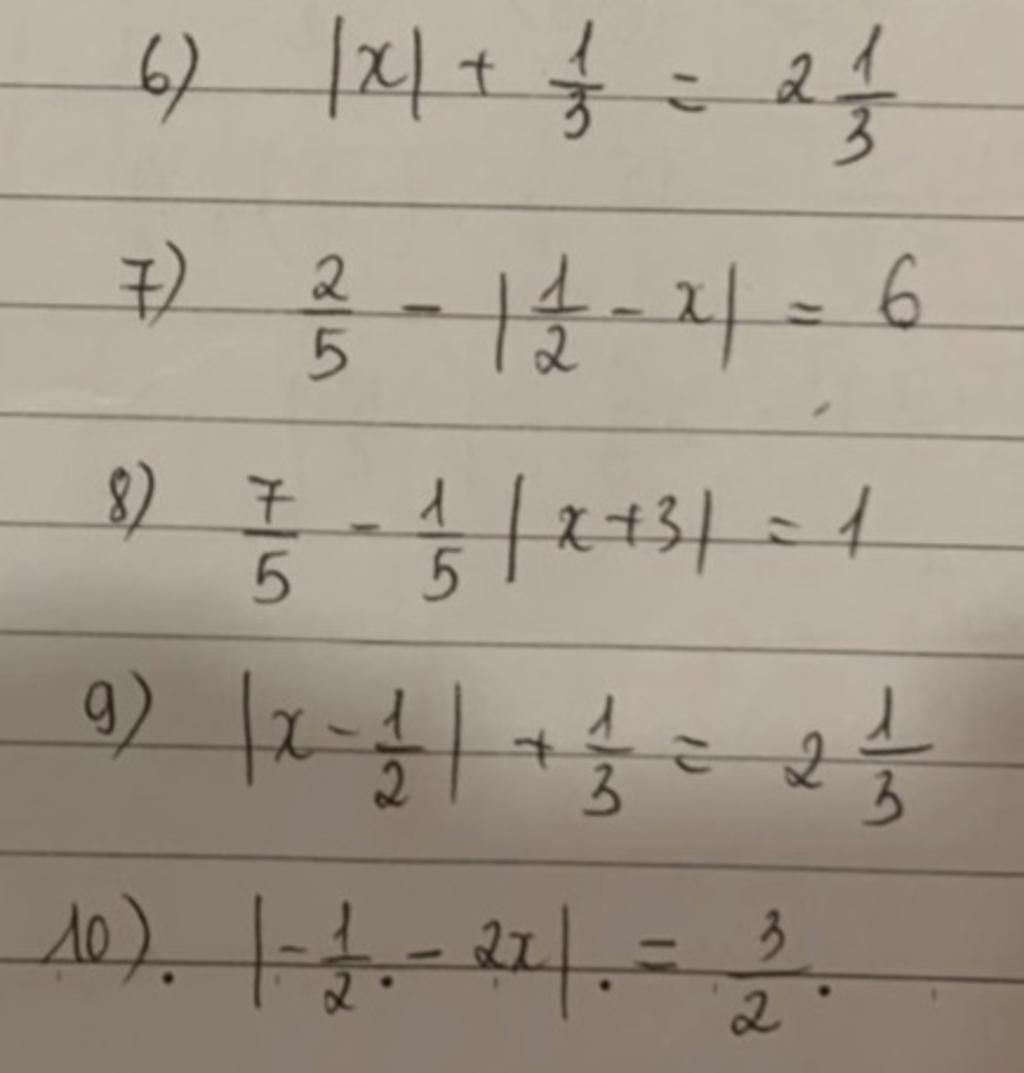 6) |x| + 1/3 = 2 1/3
7) 2/5 - |1/2 - x| = 6
8) 7/5 - 1/5 |x+3| = 1
9) |x - 1/2| + 1/3 = 2 1/3
10). |-1/2 - 2x| = 3/2